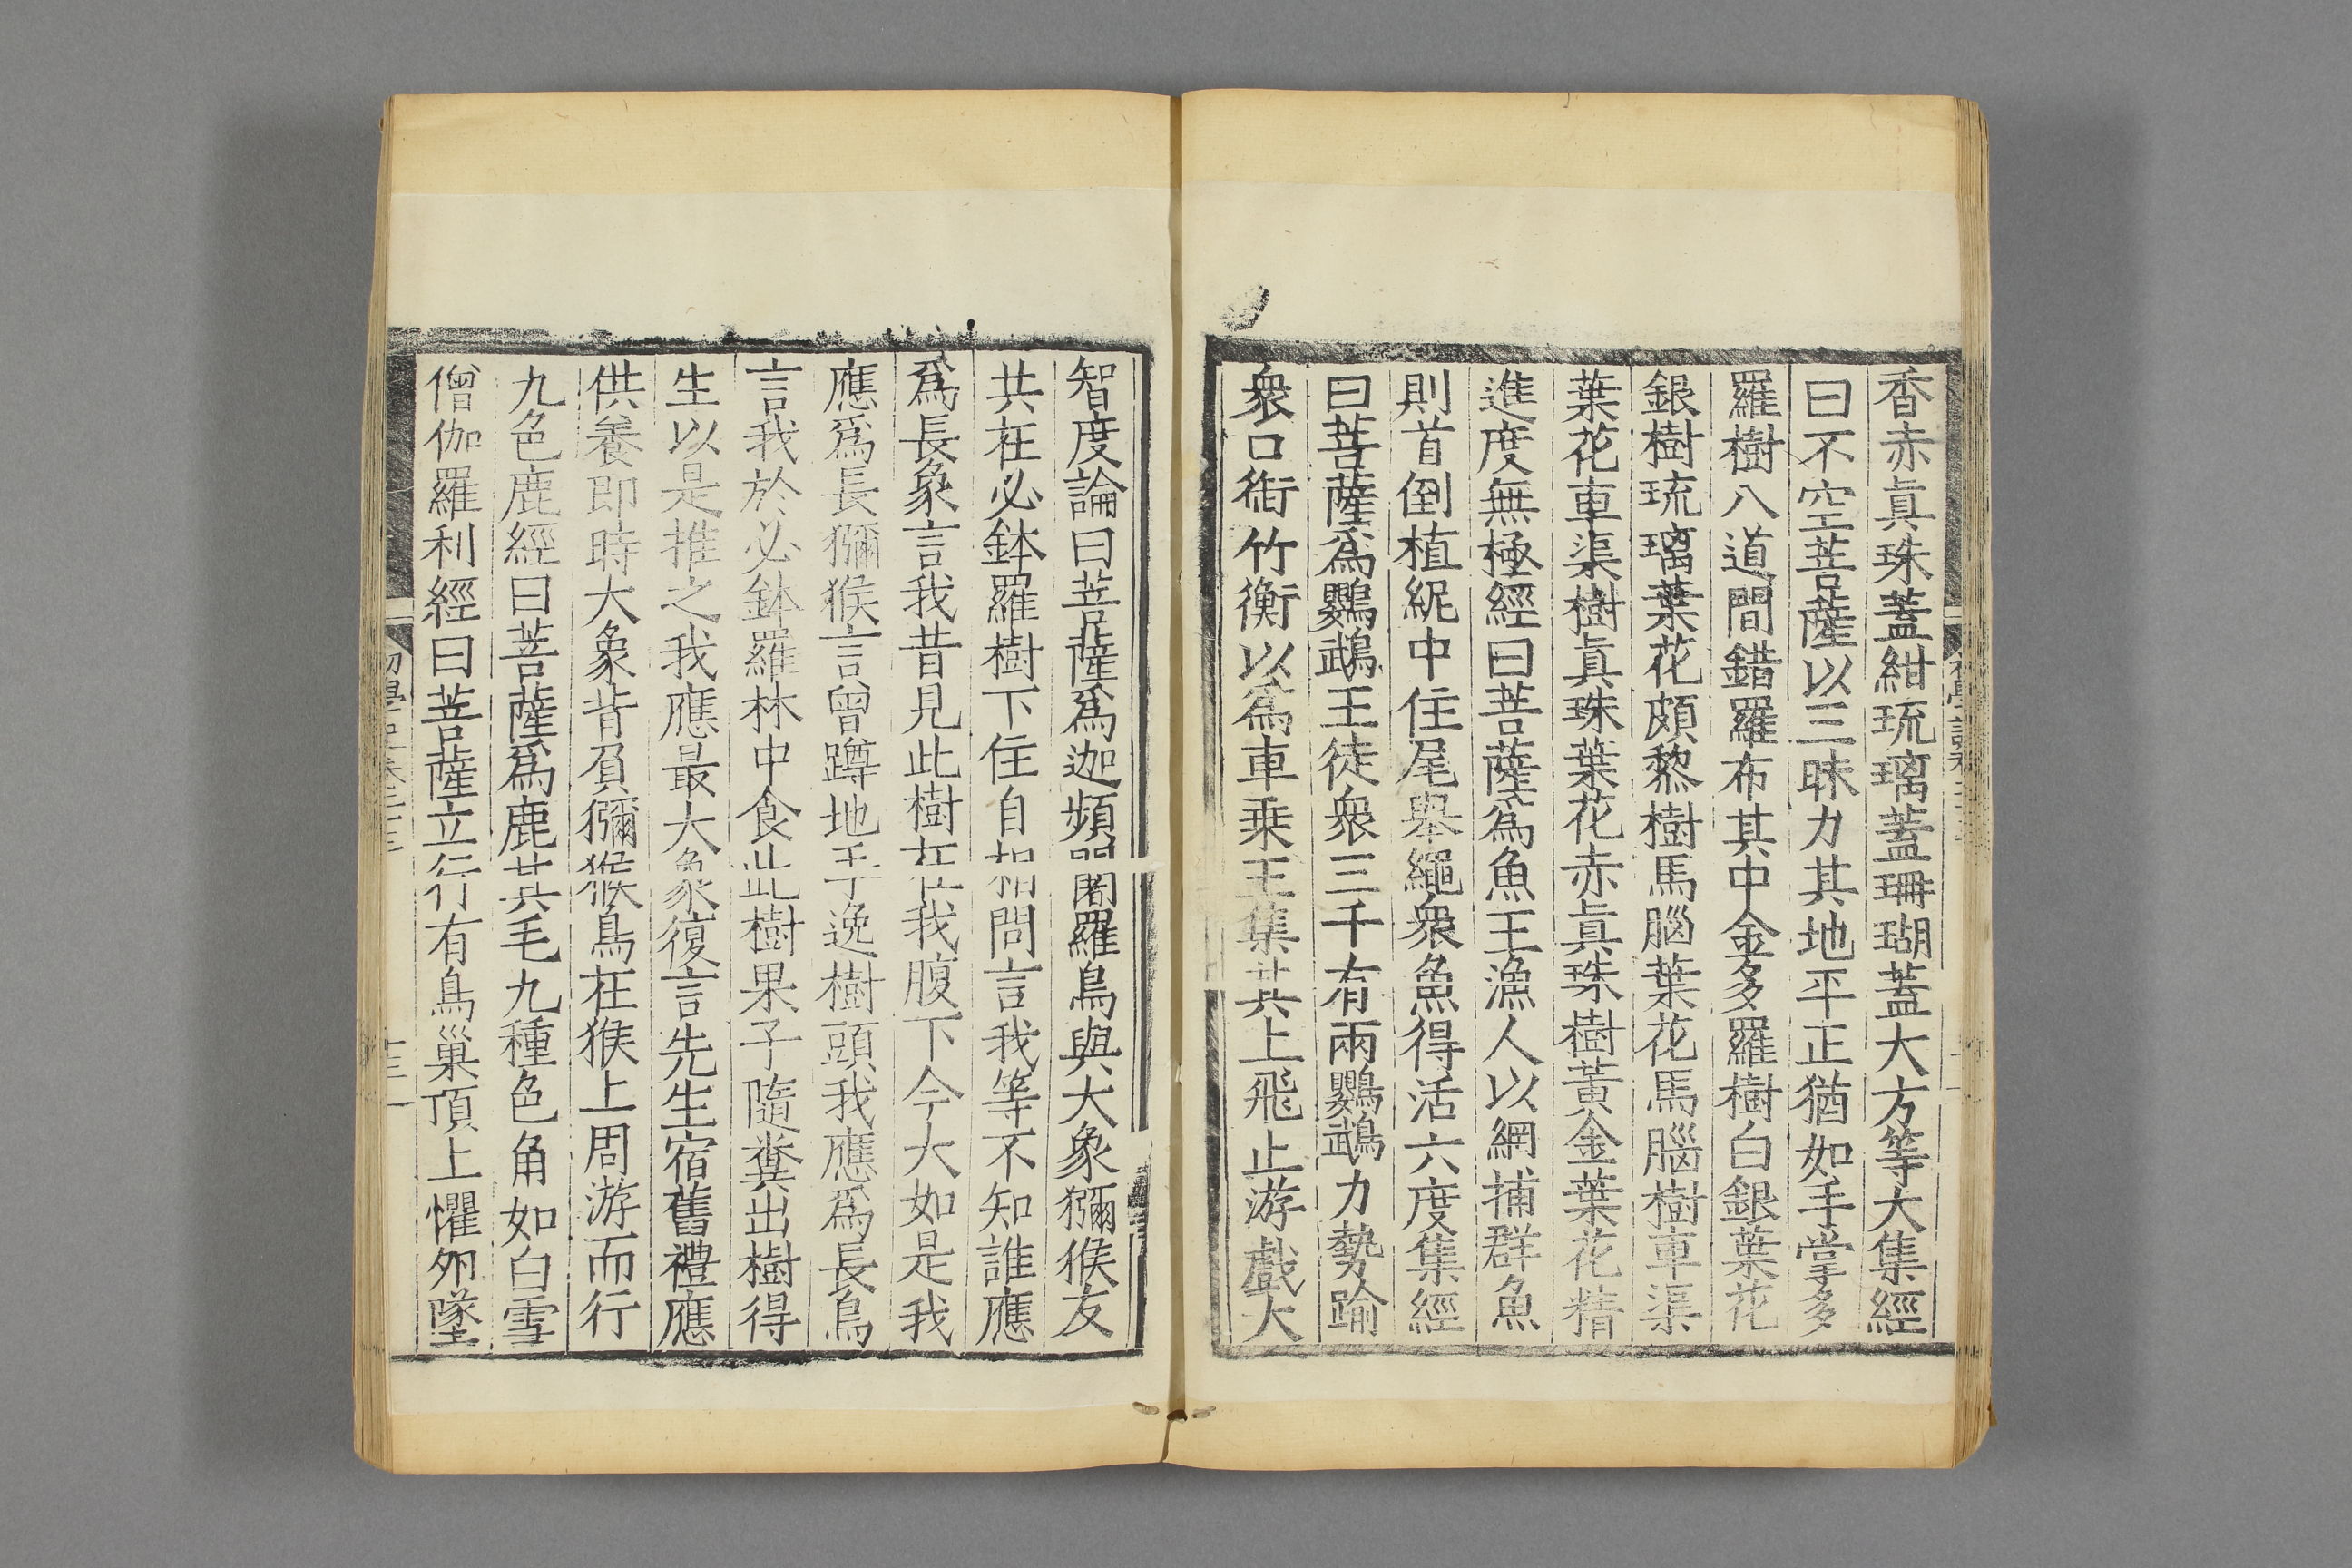 香赤眞珠蓋紺琉璃蓋珊瑚蓋大方等大集經
曰不空菩薩以三昧力其地平正猶如手掌多
羅樹八道間錯羅布其中金多羅樹白銀葉花
銀樹琉璃葉花頗黎樹馬腦葉花馬腦樹車渠
葉花車渠樹眞珠葉花赤眞珠樹黃金葉花精
進度無極經曰菩薩爲魚王漁人以網捕群魚
則首倒植泥中住尾舉繩衆魚得活六度集經
曰菩薩爲鸚鵡王徒衆三千有兩鸚鵡力勢踰
衆口銜竹衡以爲車乘王集其上飛止游戲大
智度論曰菩薩爲迦頻闍羅鳥與大象獼猴友
共在必鉢羅樹下住自相問言我等不知誰應
爲長象言我昔見此樹在我腹下今大如是我
應爲長獼猴言曾蹲地手逸樹頭我應爲長鳥
言我於必鉢羅林中食此樹果子隨糞出樹得
生以是推之我應最大象復言先生宿舊禮應
供養即時大象背負獼猴鳥在猴上周游而行
九色鹿經曰菩薩爲鹿其毛九種色角如白雪
僧伽羅利經曰菩薩立行有鳥巢頂上懼卵墜